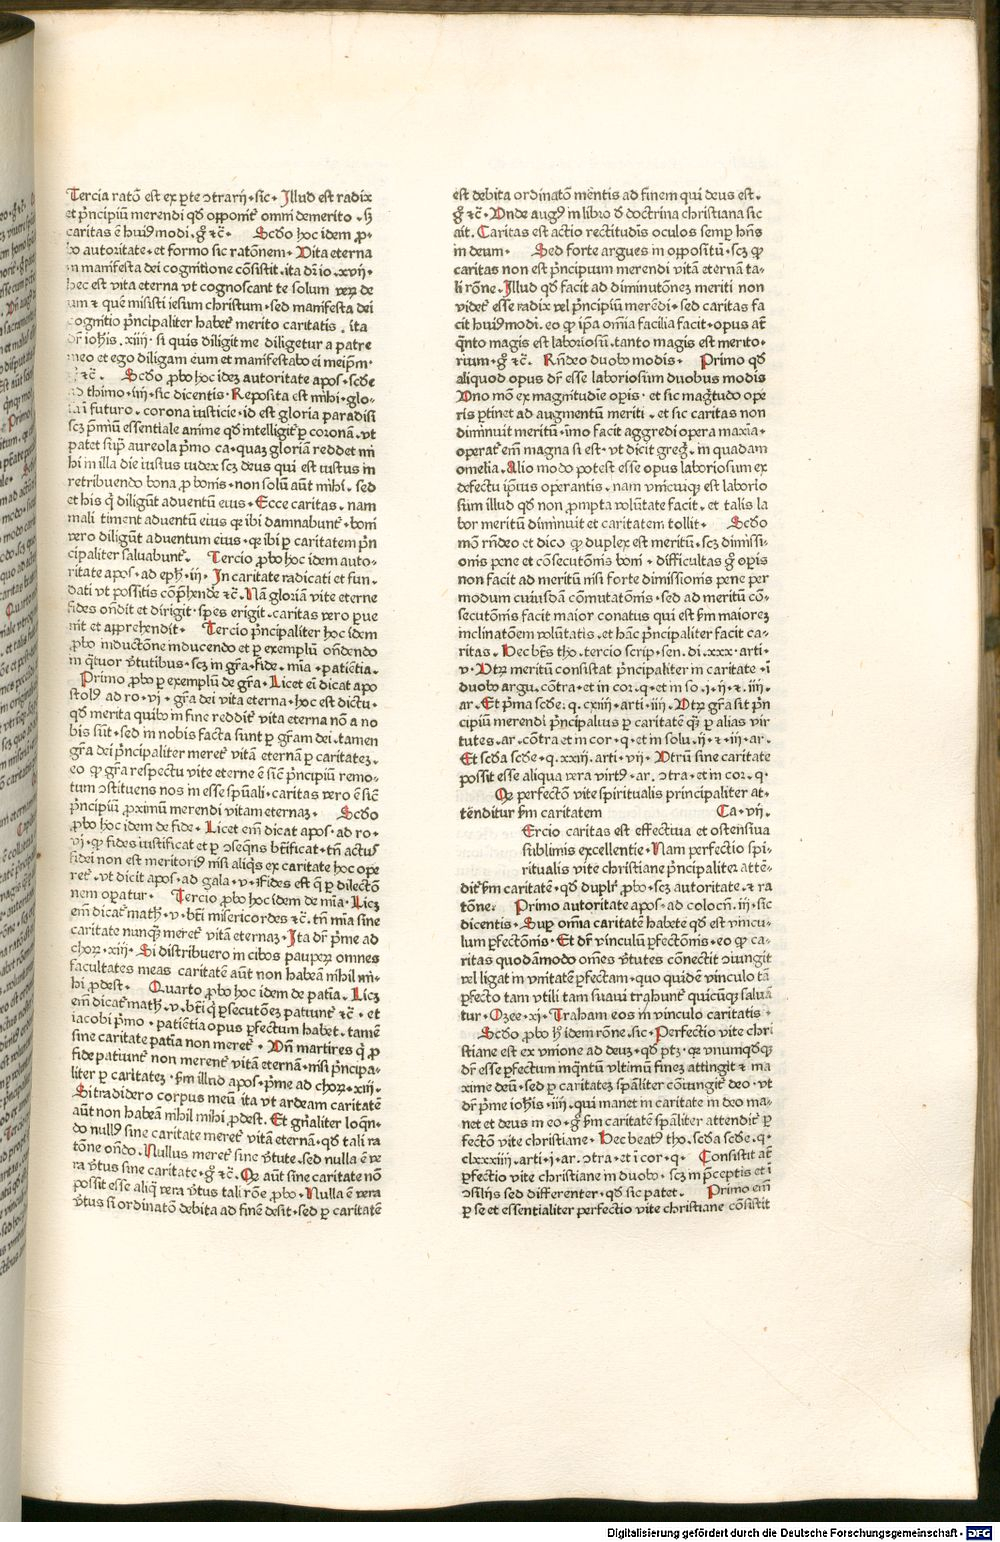 Tercia ratō est ex ꝑte ↄtrarij · sic · Illud est radix
et pͥncipiū merendi qđ opponit᷑ omni demerito · ſꝫ
caritas ē huiꝰmodi · gͦ ⁊c̄ · Scđo hoc idem ꝓ-
bo autoritate · et formo sic ratōnem · Vita eterna
in manifesta dei cognitione cōsistit · ita dr̄ io · xvij ·
hec est vita eterna vt cognoscant te solum veꝝ de
um ⁊ quē misisti iesum christum · sed manifesta dei
cognitio pͥncipaliter habet᷑ merito caritatis · ita
dr̄ ioh̄is · xiiij · si quis diligit me diligetur a patre
meo et ego diligam eum et manifestabo ei meip̄m ·
gͦ ⁊c̄ · Scđo ꝓbo hoc ideꝫ autoritate apos · scđe
ad thimo · iiij · sic dicentis · Reposita est mͥhi · glo-
ia ī futuro · corona iusticie · id est gloria paradisi
scꝫ p̄miū essentiale anime qđ intelligit᷑ ꝑ coronā · vt
patet supͣ aureola pͥmo ca · quaꝫ gloriā reddet mͥ
hi in illa die iustus iudex scꝫ deus qui est iustus in
retribuendo bona ꝓ bonis · non solū aūt mͥhi · sed
et his qͥ diligūt aduentū eius · Ecce caritas · nam
mali timent aduentū eius qꝛ ibi damnabunt᷑ · boni
vero diligūt aduentum eius · qꝛ ibi ꝑ caritatem pͥn
cipaliter saluabunt᷑ · Tercio ꝓbo hoc idem auto-
ritate apos · ad eph̄ · iij · In caritate radicati et fun-
dati vt possitis cōp̄hendē ⁊c̄ · Nā gloriā vite eterne
fides on̄dit et dirigit · spes erigit · caritas vero ꝑue
nit et apprehendit · Tercio pͥncipaliter hoc idem
ꝓbo inductōne inducendo et ꝑ exemplū on̄dendo
in qͣtuor vͥtutibus · scꝫ in grͣa · fide · mīa · patiētia ·
Primo ꝓbo ꝑ exemplū de grͣa · Licet em̄ dicat apo
stolꝰ ad ro · vj · grͣa dei vita eterna · hoc est dictu ·
qđ merita quibꝰ in fine reddit᷑ vita eterna nō a no
bis sūt · sed in nobis facta sunt ꝑ grͣam dei · tamen
grͣa dei pͥncipaliter meret᷑ vitā eternā ꝑ caritateꝫ ·
eo ꝙ grͣa respectu vite eterne ē sic̄ pͥncipiū remo-
tum ↄstituens nos in esse sp̄uali · caritas vero ē sic̄
pͥncipiū ꝓximū merendi vitam eternaꝫ · Scđo
ꝓbo hoc idem de fide · Licet em̄ dicat apos · ad ro ·
vj · ꝙ fides iustificat et ꝑ ↄseq̄ns bt̄ificat · tn̄ actus
fidei non est meritoriꝰ nisi aliqͥs ex caritate hoc ope
ret᷑ · vt dicit apos · ad gala · v · Fides est q̄ ꝑ dilectō
nem oꝑatur · Tercio ꝓbo hoc idem de mīa · Licꝫ
em̄ dicat math̄ · v · bt̄i misericordes ⁊c̄ · tn̄ mīa sine
caritate nunqͣꝫ meret᷑ vitā eternaꝫ · Ita dr̄ pͥme ad
choꝝ · xiij · Si distribuero in cibos pauꝑeꝝ omnes
facultates meas caritatē aūt non habeā nihil mͥ-
hi ꝓdest · Quarto ꝓbo hoc idem de patīa · Licꝫ
em̄ dicat᷑ math̄ · v · bt̄i qͥ ꝑsecutōeꝫ patiunt᷑ ⁊c̄ · et
iacobi pͥmo · patiētia opus ꝑfectum habet · tamē
sine caritate patīa non meret᷑ · Vn̄ martires qͥ ꝓ
fide patiunt᷑ non merent᷑ vitā eternā · nisi pͥncipa-
liter ꝑ caritateꝫ · ẜm illud apos · pͥme ad choꝝ · xiij ·
Si tradidero corpus meū ita vt ardeam caritatē
aūt non habeā nihil mihi ꝓdest · Et gn̄aliter loqn̄-
do nullꝰ sine caritate meret᷑ vitā eternā · qđ tali ra
tōne on̄do · Nullus meret᷑ sine vͥtute · sed nulla ē ve
ra vͥtus sine caritate · gͦ ⁊c̄ · Qꝛ aūt sine caritate nō
possit esse aliqͣ vera vͥtus tali rōne ꝓbo · Nulla ē vera
vͥtus si ordinatō debita ad finē desit · sed ꝑ caritatē
est debita ordinatō mentis ad finem qui deus est ·
gͦ ⁊c̄ · Vnde augꝰ in libro đ doctrina christiana sic
ait · Caritas est actio rectitudis oculos semꝑ hn̄s
in deum · Sed forte argues in oppositū · scꝫ ꝙ
caritas non est pͥncipium merendi vitā eternā ta-
li rōne · Illud qđ facit ad diminutōneꝫ meriti non
videt᷑ esse radix vel pͥncipiū merēdi · sed caritas fa
cit huiꝰmodi · eo ꝙ ip̄a om̄ia facilia facit · opus at̄
qͣnto magis est laboriosū · tanto magis est merito-
rium · gͦ ⁊c̄ · Rn̄deo duobꝰ modis · Primo qđ
aliquod opus dr̄ esse laboriosum duobus modis
Vno mō ex magnitudīe oꝑis · et sic mag͛tudo ope
ris ꝑtinet ad augmentū meriti · et sic caritas non
diminuit meritū · imo facit aggredi opera maxīa ·
operat᷑ em̄ magna si est · vt dicit greḡ · in quadam
omelia · Alio modo potest esse opus laboriosum ex
defectu ip̄ius operantis · nam vnicuiqꝫ est laborio
sum illud qđ non ꝓmpta volūtate facit · et talis la
bor meritū diminuit et caritatem tollit · Scđo
mō rn̄deo et dico ꝙ duplex est meritū · scꝫ dimissi-
onis pene et cōsecutōnis boni · difficultas gͦ oꝑis
non facit ad meritū nisi forte dimissionis pene per
modum cuiusdā cōmutatōnis · sed ad meritū cō-
secutōnis facit maior conatus qui est ẜm maioreꝫ
inclinatōem volūtatis · et hāc pͥncipaliter facit ca-
ritas · Hec bt̄s tho · tercio scrip · sen · di · xxx · arti ·
v · Vtꝝ meritū consistat pͥncipaliter in caritate · ī
duobꝰ argu · cōtra · et in coꝛ · q · et in so · i · ij · ⁊ · iiij ·
ar · Et pͥma scđe · q · cxiiij · arti · iiij · Vtꝝ grͣa sit pͥn
cipiū merendi pͥncipalius ꝑ caritatē qͣꝫ ꝑ alias vir
tutes · ar · cōtra et in cor · q · et in solu · ij · ⁊ · iij · ar ·
Et scđa scđe · q · xxiij · arti · vij · Vtrū sine caritate
possit esse aliqua vera virtꝰ · ar · ↄtra · et in coꝛ · q ·
Qꝛ perfectō vite spiritualis principaliter at-
tēnditur ẜm caritatem Ca · vij ·
Ercio caritas est effectiua et ostensiua
sublimis excellentie · Nam perfectio spi-
ritualis vite christiane pͥncipaliter attē-
dit᷑ ẜm caritatē · qđ duplr̄ ꝓbo · scꝫ autoritate · ⁊ ra
tōne · Primo autoritate apos · ad colocn̄ · iij · sic
dicentis · Suꝑ om̄ia caritatē habete qđ est vincu-
lum ꝑfectōnis · Et dr̄ vinculū ꝑfectōnis · eo ꝙ ca-
ritas quodāmodo om̄es vͥtutes cōnectit ↄiungit
vel ligat in vnitatē ꝑfectam · quo quidē vinculo tā
ꝑfecto tam vtili tam suaui trahunt᷑ quicūqꝫ saluā
tur · Ozee · xj · Traham eos in vinculo caritatis ·
Scđo ꝓbo h̄ idem rōne · sic · Perfectio vite chri
stiane est ex vnione ad deuꝫ · qđ ptꝫ · qꝛ vnumqđqꝫ
dr̄ esse ꝑfectum inqͣntū vltimū fineꝫ attingit · ⁊ ma
xime deū · sed ꝑ caritateꝫ sp̄aliter cōiungit᷑ deo · vt
dr̄ pͥme ioh̄is · iiij · qui manet in caritate in deo ma-
net et deus in eo · gͦ ẜm caritatē sp̄aliter attendit᷑ ꝑ
fectō vite christiane · Hec beatꝰ tho · scđa scđe · q ·
clxxxiiij · arti · j · ar · ↄtra · et ī cor · q · Consistit at̄
ꝑfectio vite christiane in duobꝰ · scꝫ in p̄ceptis et ī
ↄsilijs sed differenter · qđ sic patet · Primo em̄
ꝑ se et essentialiter perfectio vite christiane cōsistit
Digitalisierung gefördert durch die Deutsche Forschungsgemeinschaft - DFG